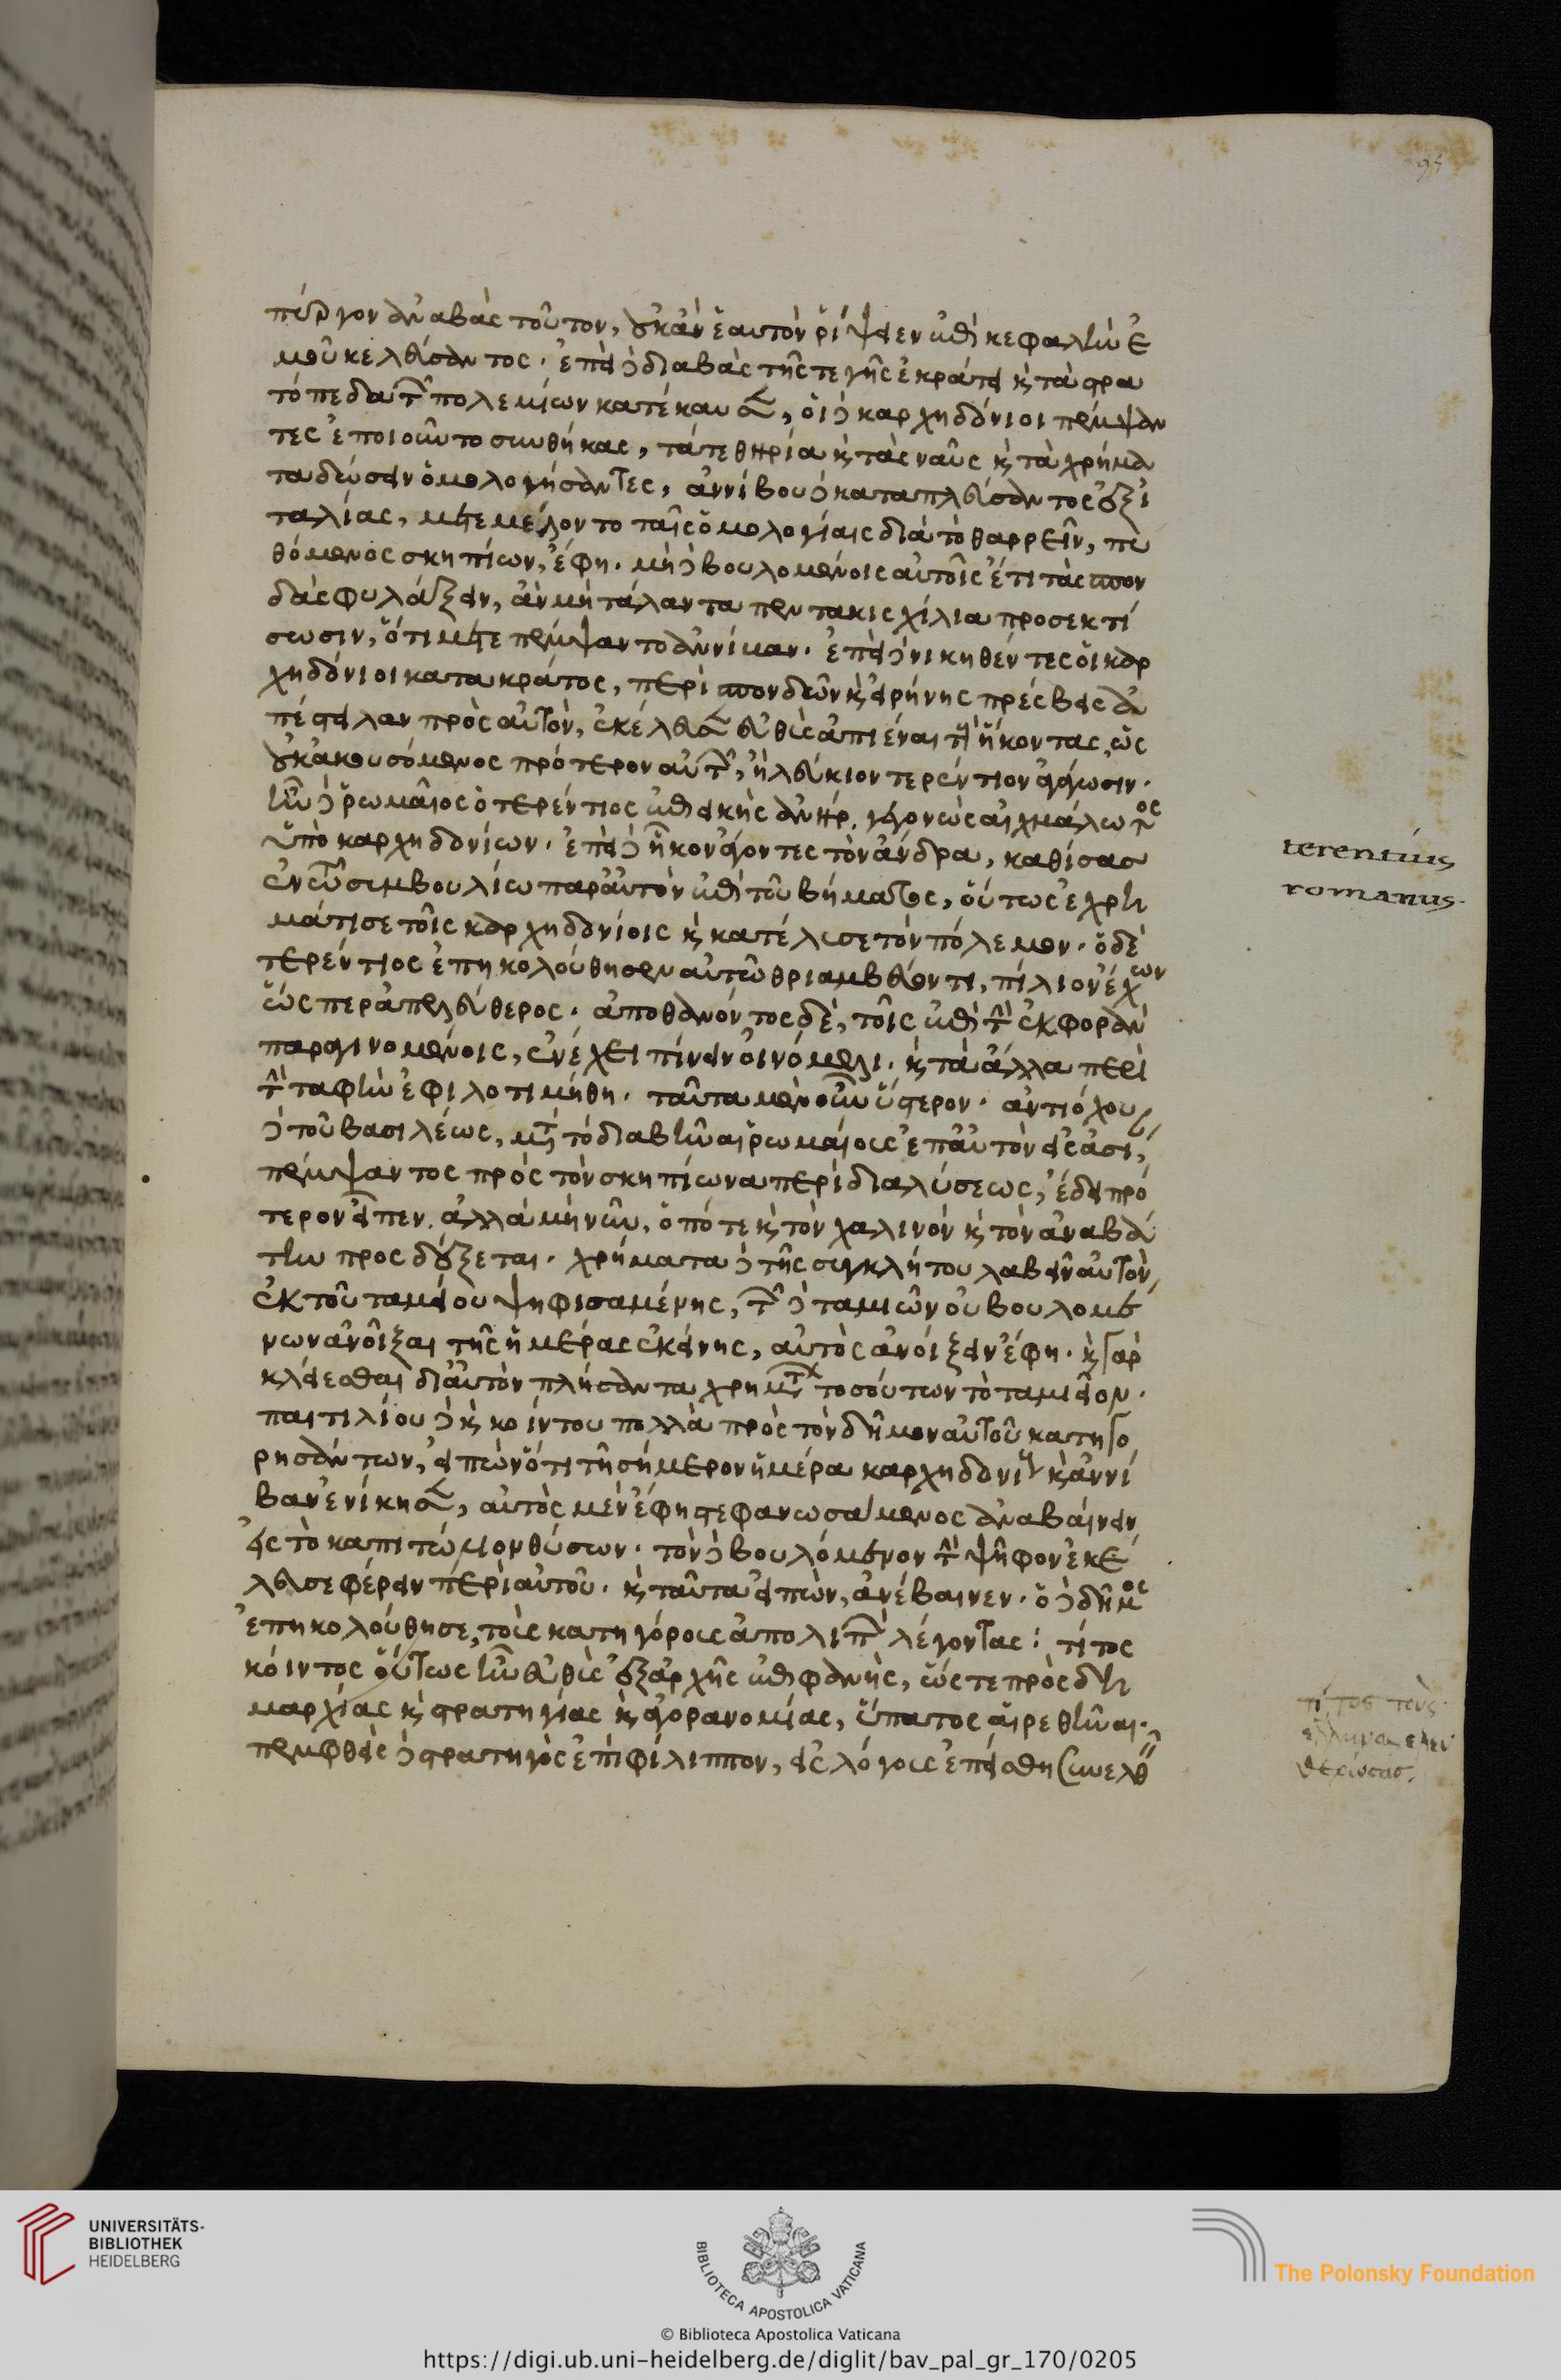 95
πύργον ἀναβὰς τοῦτον, οὐκ ἂν ἑαυτὸν ῥίψειεν ἐπὶ κεφαλὴν ἐ
μοῦ κελεύσαντος. ἐπεὶ δὲ διαβὰς τῆς τε γῆς ἐκράτει καὶ τὰ στρα
τόπεδα τῶν πολεμίων κατέκαυσε, οἱ δὲ καρχηδόνιοι πέμψαν
τες ἐποιοῦντο συνθήκας, τά τε θηρία καὶ τὰς ναῦς καὶ τὰ χρήμα
τα δώσειν ὁμολογήσαντες, ἀννίβου δὲ καταπλεύσαντος ἐξ ἰ
ταλίας, μετεμέλοντο ταῖς ὁμολογίαις διὰ τὸ θαρρεῖν, πυ
θόμενος σκηπίων, ἔφη. μὴ δὲ βουλομένοις αὐτοῖς ἔτι τὰς σπον
δὰς φυλάξειν, ἂν μὴ τάλαντα πεντακισχίλια προσεκτί
σωσιν, ὅτι μετεπέμψαντο ἀννίβαν. ἐπεὶ δὲ νικηθέντες οἱ καρ
χηδόνιοι κατακράτος, περὶ σπονδῶν καὶ εἰρήνης πρέσβεις ἀ
πέστειλαν πρὸς αὐτὸν, ἐκέλευσε εὐθὺς ἀπιέναι τοὺς ἥκοντας, ὡς
οὐκ ἀκουσόμενος πρότερον αὐτῶν, ἢ λεύκιον τερέντιον ἀγάγωσιν.
ἦν δὲ ῥωμαῖος ὁ τερέντιος ἐπιεικὴς ἀνὴρ, γεγονὼς αἰχμάλωτος
ὑπὸ καρχηδονίων. ἐπεὶ δὲ ἧκον ἄγοντες τὸν ἄνδρα, καθίσας
ἐν τῷ συμβουλίω παρ' αὐτὸν ἐπὶ τοῦ βήματος, οὕτως ἐχρη
μάτισε τοῖς καρχηδονίοις καὶ κατέλυσε τὸν πόλεμον. ὁ δὲ
τερέντιος ἐπηκολούθησεν αὐτῷ θριαμβεύοντι, πιλίον ἔχων
ὥσπερ ἀπελεύθερος. ἀποθανόντος δὲ, τοῖς ἐπὶ τὴν ἐκφορὰν
παραγινομένοις, ἐνέχει πίνειν οἰνόμελι. καὶ τὰ ἄλλα περὶ
τὴν ταφὴν ἐφιλοτιμήθη. ταῦτα μὲν οὖν ὕστερον. ἀντιόχου
δὲ τοῦ βασιλέως, μετὰ τὸ διαβῆναι ῥωμαίους ἐπ' αὐτὸν εἰς ἀσί,
πέμψαντος πρὸς τὸν σκηπίωνα περὶ διαλύσεως, ἔδει πρό
τερον εἶπεν. ἀλλὰ μὴ νῦν, ὁπότε καὶ τὸν χαλινὸν καὶ τὸν ἀναβά
την προσδέδεξαι. χρήματα δὲ τῆς συγκλήτου λαβεῖν αὐτὸν
ἐκ τοῦ ταμείου ψηφισαμένης, τῶν δὲ ταμιῶν οὐ βουλομέ
νων ἀνοῖξαι τῆς ἡμέρας ἐκείνης, αὐτὸς ἀνοίξειν ἔφη. καὶ γὰρ
κλείεσθαι δι' αὐτὸν πλήσαντα χρημάτων τοσούτων τὸ ταμιεῖον.
παιτιλίου δὲ καὶ κοίντου πολλὰ πρὸς τὸν δῆμον αὐτοῦ κατηγο
ρησάντων, εἰπὼν ὅτι τῇ σήμερον ἡμέρα καρχηδονίους καὶ ἀννί
βαν ἐνίκησε, αὐτὸς μὲν ἔφη στεφανωσάμενος ἀναβαίνειν
εἰς τὸ καπιτώλιον θύσων. τὸν δὲ βουλόμενον τὴν ψῆφον ἐκέ
λευσε φέρειν περὶ αὐτοῦ. καὶ ταῦτα εἰπὼν, ἀνέβαινεν. ὁ δὲ δῆμος
ἐπηκολούθησε, τοὺς κατηγόρους ἀπολιπὼν λέγοντας: τίτος
κόιντος οὕτως ἦν εὐθὺς ἐξ ἀρχῆς ἐπιφανὴς, ὥστε πρὸ δη
μαρχίας καὶ στρατηγίας καὶ ἀγορανομίας, ὕπατος αἱρεθῆναι.
πεμφθεὶς δὲ στρατηγὸς ἐπὶ φίλιππον, εἰς λόγους ἐπείσθη συνελθεῖν
terentius
romanus.
τίτος τοὺς
ἕλληνας ἐλευ
θερώσας.
UNIVERSITÄTS-
BIBLIOTHEK
HEIDELBERG
BIBLIOTECA APOSTOLICA VATICANA
The Polonsky Foundation
© Biblioteca Apostolica Vaticana
https://digi.ub.uni-heidelberg.de/diglit/bav_pal_gr_170/0205